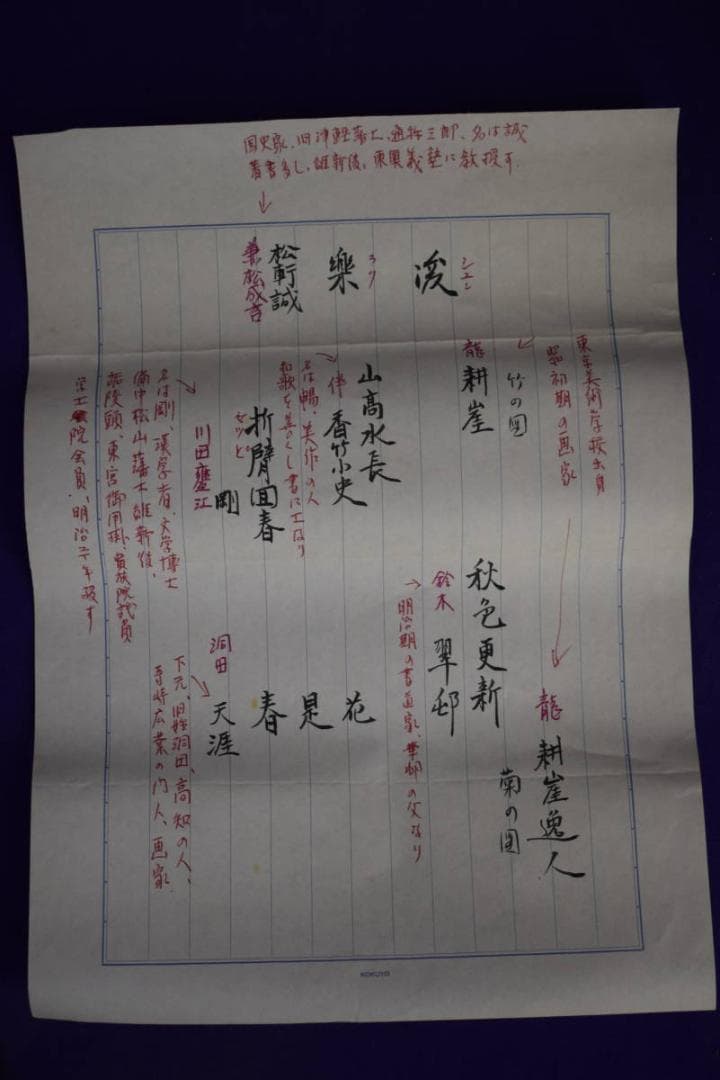 国史家、旧津軽藩士、通称三郎、名は誠
著書多し、維新後、東奥義塾に教授す
浚
シユン
樂
ラク
松軒誠
兼松成言
東京美術学校出身
昭初期の画家
竹の図
龍
耕崖
山高水長
伴
香竹小史
名は暢、美作の人
和歌を善くし書に工なり
折臂回春
セッピ
剛
川田甕江
名は剛、漢学者、文学博士
備中松山藩士維新後、
諸陵頭、東宮御用掛、貴族院議員
学士院会員、明治二十年歿す
龍
耕崖逸人
菊の図
秋色更新
鈴木
翠邨
明治期の書道家、華邨の父なり
花
是
春
洞田
天涯
下元、旧姓洞田、高知の人、
寺崎広業の門人、画家
KOKUYO